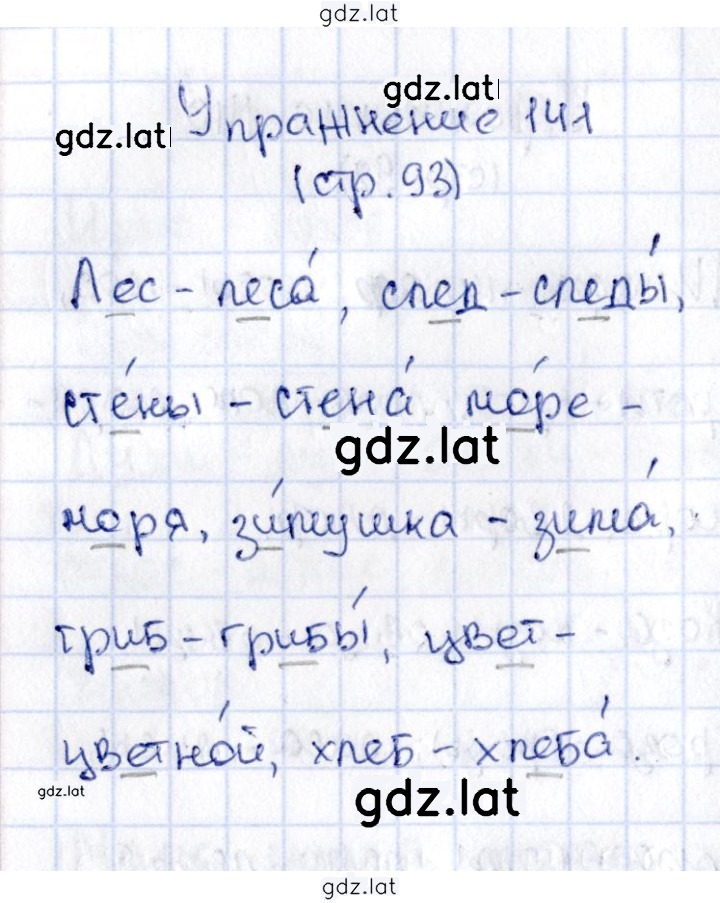 gdz.lat
gdz.lat
gdz.lat
Упражнение 141
(стр. 93)
Лес - леса́, след - следы́,
сте́ны - стена́ мо́ре -
gdz.lat
моря, зи́мушка - зима́,
гриб - грибы́, цвет -
цветно́й, хлеб - хлеба́.
gdz.lat
gdz.lat
gdz.lat